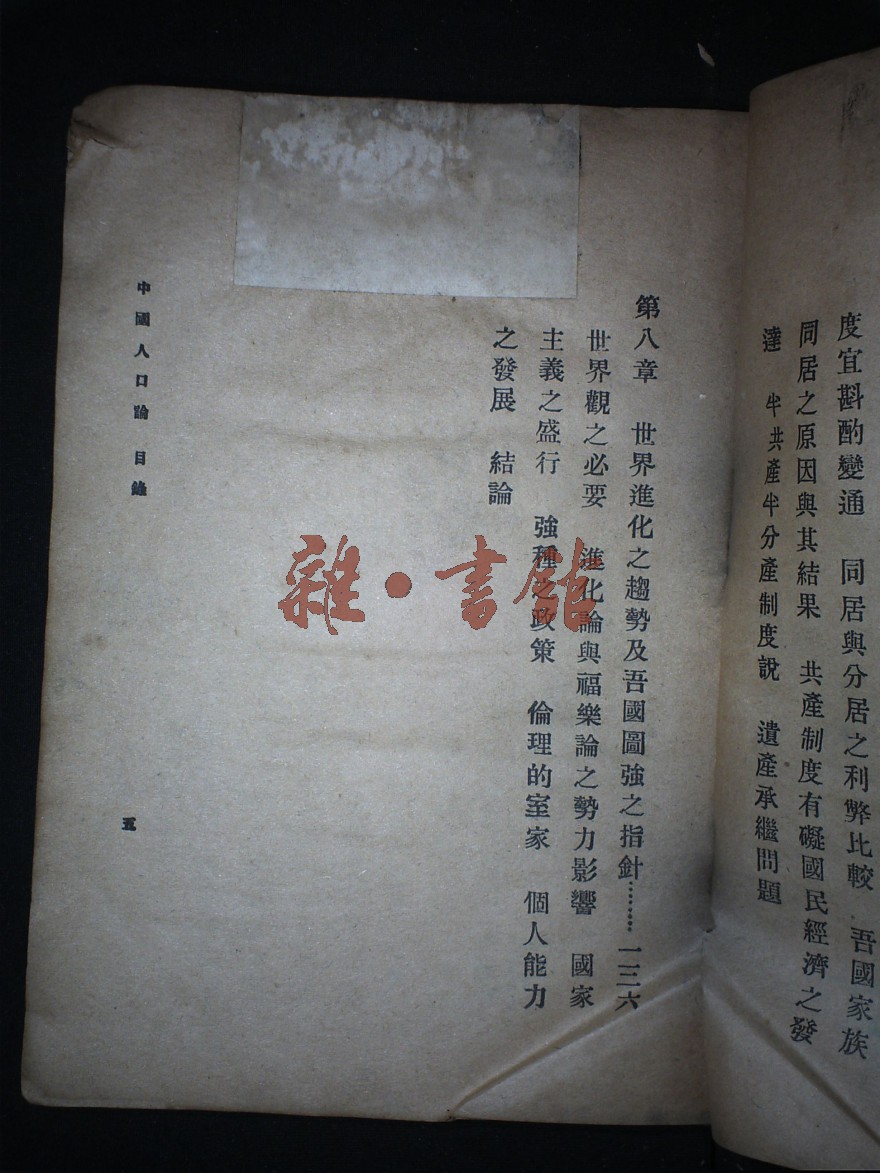 度宜斟酌變通　同居與分居之利弊比較　吾國家族
同居之原因與其結果　共產制度有礙國民經濟之發
達　半共產半分產制度說　遺產承繼問題
第八章　世界進化之趨勢及吾國圖強之指針………一三六
世界觀之必要　進化論與福樂論之勢力影響　國家
主義之盛行　強種之政策　倫理的室家　個人能力
之發展　結論
中國人口論　目錄
五
雜·書館